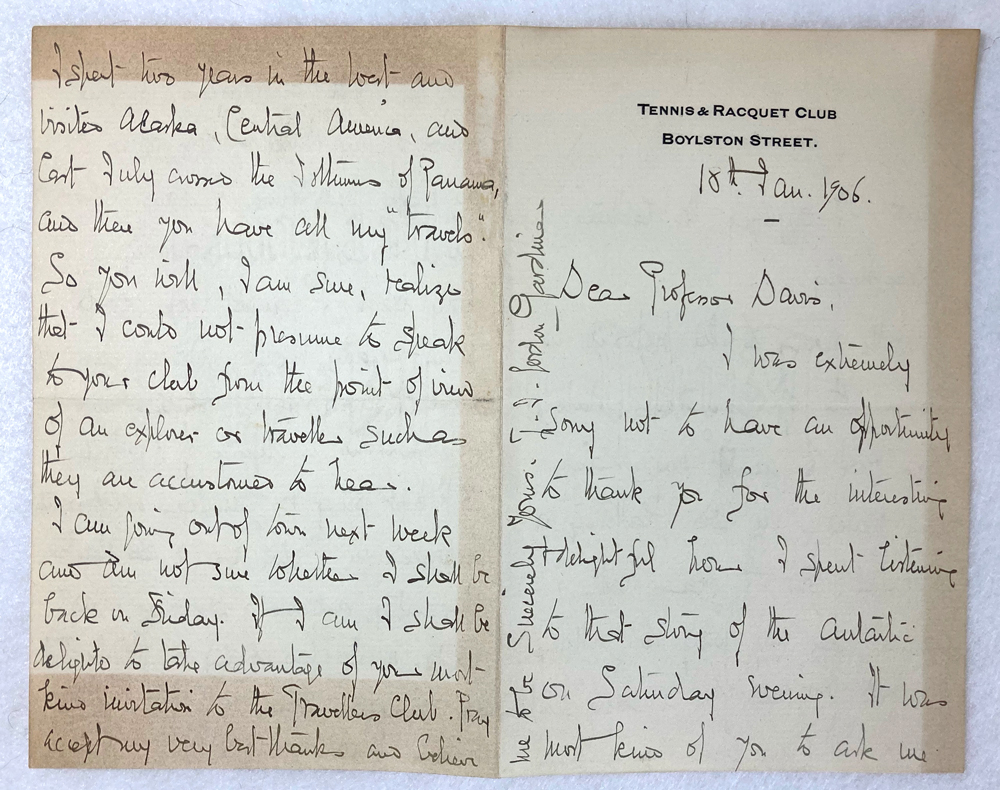 TENNIS & RACQUET CLUB
BOYLSTON STREET.
18th Jan. 1906.
Dear Professor Davis,
I was extremely
sorry not to have an opportunity
to thank you for the interesting
& delightful hour I spent listening
to that story of the antarctic
on Saturday evening. It was
most kind of you to ask me
I spent two years in the west and
visited Alaska, Central America, and
last July crossed the Isthmus of Panama,
and there you have all my "travels".
So you will, I am sure, realize
that I could not presume to speak
to your club from the point of view
of an explorer or traveller such as
they are accustomed to hear.
I am going out of town next week
and am not sure whether I shall be
back on Friday. If I am I shall be
delighted to take advantage of your most
kind invitation to the Travellers Club. Pray
accept my very best thanks and believe
me to be Sincerely Yours. T. J. Gordon Gardiner